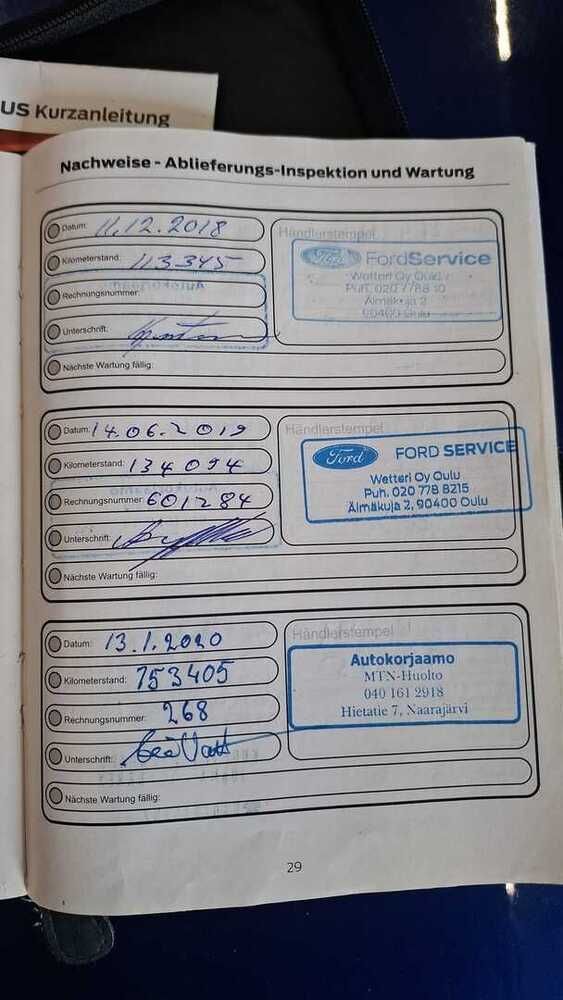 US Kurzanleitung
Nachweise - Ablieferungs-Inspektion und Wartung
Datum: 11.12.2018
Kilometerstand: 113345
Rechnungsnummer:
Unterschrift:
Nächste Wartung fällig:
Händlerstempel
Ford FordService
Wetteri Oy Oulu
Puh. 020 778 8210
Älmäkuja 2
90400 Oulu
Datum: 14.06.2019
Kilometerstand: 134094
Rechnungsnummer: 601284
Unterschrift:
Nächste Wartung fällig:
Händlerstempel
Ford FORD SERVICE
Wetteri Oy Oulu
Puh. 020 778 8215
Älmäkuja 2, 90400 Oulu
Datum: 13.1.2020
Kilometerstand: 153405
Rechnungsnummer: 268
Unterschrift:
Nächste Wartung fällig:
Händlerstempel
Autokorjaamo
MTN-Huolto
040 161 2918
Hietatie 7, Naarajärvi
29